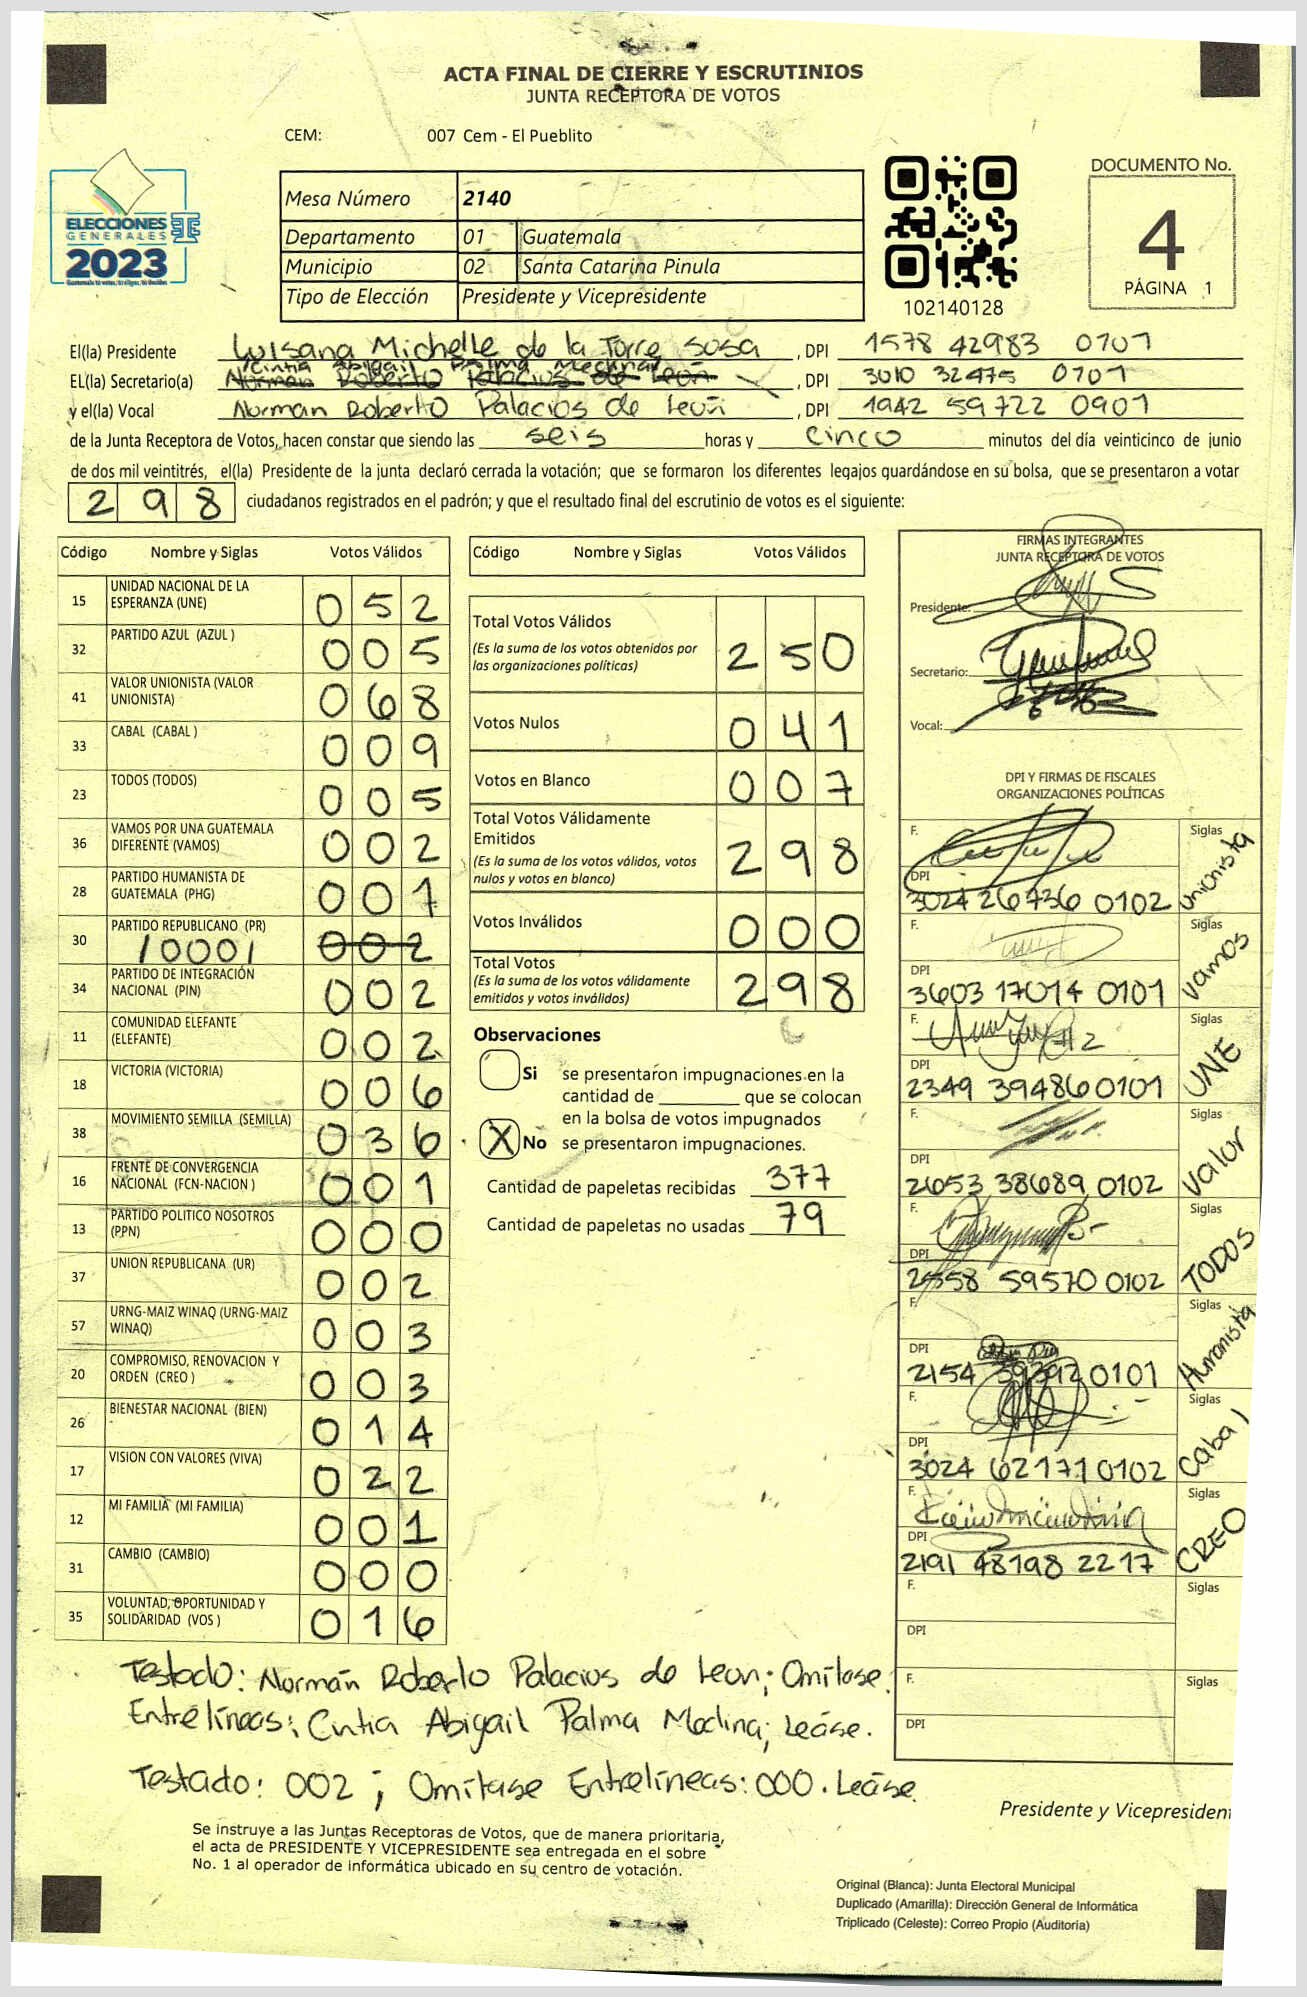 ACTA FINAL DE CIERRE Y ESCRUTINIOS
JUNTA RECEPTORA DE VOTOS
CEM: 007 Cem - El Pueblito
ELECCIONES
GENERALES
2023
Mesa Número 2140
Departamento 01 Guatemala
Municipio 02 Santa Catarina Pinula
Tipo de Elección Presidente y Vicepresidente
102140128
DOCUMENTO No.
4
PÁGINA 1
El(la) Presidente Luisana Michelle de la Torre Sosa, DPI 1578 42983 0101
Cintia Abigail Palma Medina
EL(la) Secretario(a) Norman Roberto Palacios de León, DPI 3010 32475 0101
y el(la) Vocal Norman Roberto Palacios de León, DPI 1942 59722 0901
de la Junta Receptora de Votos, hacen constar que siendo las seis horas y cinco minutos del día veinticinco de junio
de dos mil veintitrés, el(la) Presidente de la junta declaró cerrada la votación; que se formaron los diferentes legajos guardándose en su bolsa, que se presentaron a votar
298 ciudadanos registrados en el padrón; y que el resultado final del escrutinio de votos es el siguiente:
Código Nombre y Siglas Votos Válidos
15 UNIDAD NACIONAL DE LA ESPERANZA (UNE) 052
32 PARTIDO AZUL (AZUL ) 005
41 VALOR UNIONISTA (VALOR UNIONISTA) 068
33 CABAL (CABAL ) 009
23 TODOS (TODOS) 005
36 VAMOS POR UNA GUATEMALA DIFERENTE (VAMOS) 002
28 PARTIDO HUMANISTA DE GUATEMALA (PHG) 001
30 PARTIDO REPUBLICANO (PR) 10001 002
34 PARTIDO DE INTEGRACIÓN NACIONAL (PIN) 002
11 COMUNIDAD ELEFANTE (ELEFANTE) 002
18 VICTORIA (VICTORIA) 006
38 MOVIMIENTO SEMILLA (SEMILLA) 036
16 FRENTE DE CONVERGENCIA NACIONAL (FCN-NACION ) 001
13 PARTIDO POLITICO NOSOTROS (PPN) 000
37 UNION REPUBLICANA (UR) 002
57 URNG-MAIZ WINAQ (URNG-MAIZ WINAQ) 003
20 COMPROMISO, RENOVACION Y ORDEN (CREO ) 003
26 BIENESTAR NACIONAL (BIEN) 014
17 VISION CON VALORES (VIVA) 022
12 MI FAMILIA (MI FAMILIA) 001
31 CAMBIO (CAMBIO) 000
35 VOLUNTAD, OPORTUNIDAD Y SOLIDARIDAD (VOS ) 016
Código Nombre y Siglas Votos Válidos
Total Votos Válidos 250
(Es la suma de los votos obtenidos por
las organizaciones políticas)
Votos Nulos 041
Votos en Blanco 007
Total Votos Válidamente
Emitidos 298
(Es la suma de los votos válidos, votos
nulos y votos en blanco)
Votos Inválidos 000
Total Votos 298
(Es la suma de los votos válidamente
emitidos y votos inválidos)
Observaciones
Si se presentaron impugnaciones en la
cantidad de ________ que se colocan
en la bolsa de votos impugnados
X No se presentaron impugnaciones.
Cantidad de papeletas recibidas 377
Cantidad de papeletas no usadas 79
FIRMAS INTEGRANTES
JUNTA RECEPTORA DE VOTOS
Presidente:
Secretario:
Vocal:
DPI Y FIRMAS DE FISCALES
ORGANIZACIONES POLÍTICAS
F. Siglas Unionista
DPI
3024 26736 0102
F. Siglas Vamos
DPI
3603 17014 0101
F. Siglas UNE
DPI
2349 39486 0101
F. Siglas Valor
DPI
2653 38689 0102
F. Siglas TODOS
DPI
2558 59570 0102
F. Siglas Humanista
DPI
2154 39392 0101
F. Siglas Cabal
DPI
3024 62171 0102
F. Siglas CREO
DPI
2191 48198 2217
F. Siglas
DPI
F. Siglas
DPI
Testado: Norman Roberto Palacios de Leon; Omitase.
Entrelíneas: Cintia Abigail Palma Medina; Leáse.
Testado: 002; Omítase Entrelíneas: 000. Leáse.
Presidente y Vicepresiden
Se instruye a las Juntas Receptoras de Votos, que de manera prioritaria,
el acta de PRESIDENTE Y VICEPRESIDENTE sea entregada en el sobre
No. 1 al operador de informática ubicado en su centro de votación.
Original (Blanca): Junta Electoral Municipal
Duplicado (Amarilla): Dirección General de Informática
Triplicado (Celeste): Correo Propio (Auditoría)